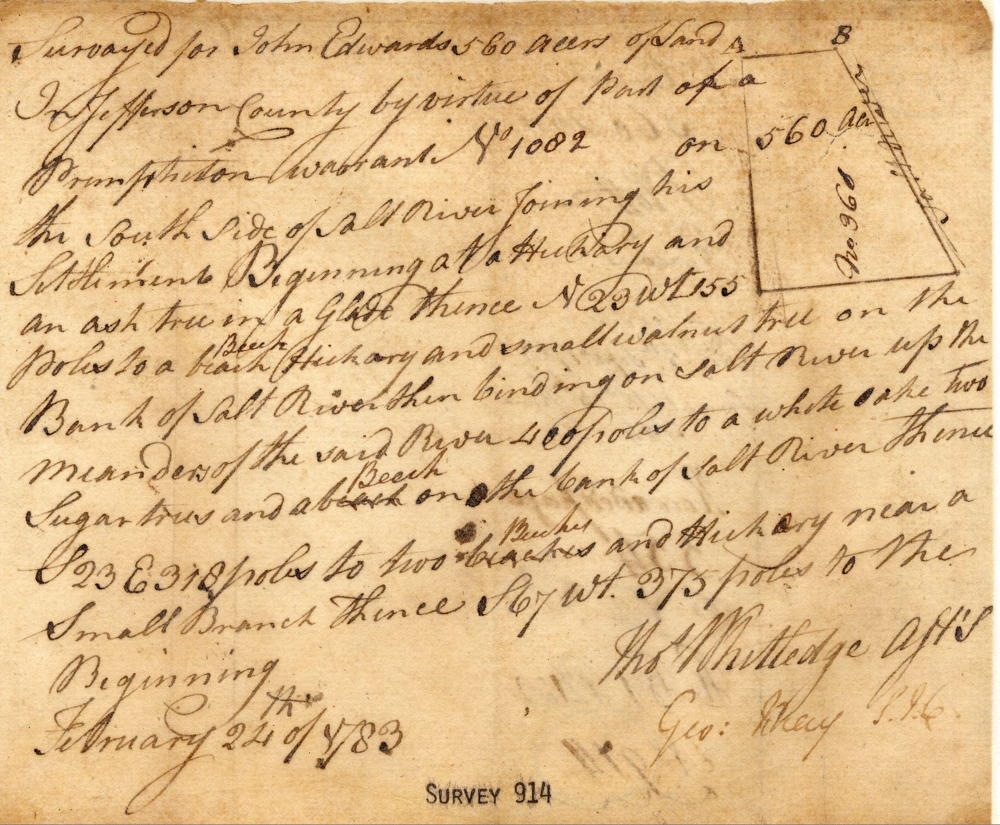 Survayed for John Edwards 560 acers of Land
A B
In Jefferson County by virtue of Part of a
Premphtion warrant No 1082 on
560 Acr
No. 960
Salt River
the South Side of Salt River Joining his
Settlement Beginning at a Hickary and
an ash tree in a Glade thence N 23 Wt 155
Beech
Poles to a beach Hickary and small walnut tree on the
Bank of Salt River then binding on Salt River up the
meanders of the said River 400 poles to a white oake two
Beech
Sugar trees and a beach on the bank of Salt River thence
Beches
S 23 E 318 poles to two beaches and Hickary near a
Small Branch thence S 67 Wt. 375 poles to the
Beginning
Thos Whitledge Asts
February 24th of 1783
Geo: May S.J.C.
SURVEY 914